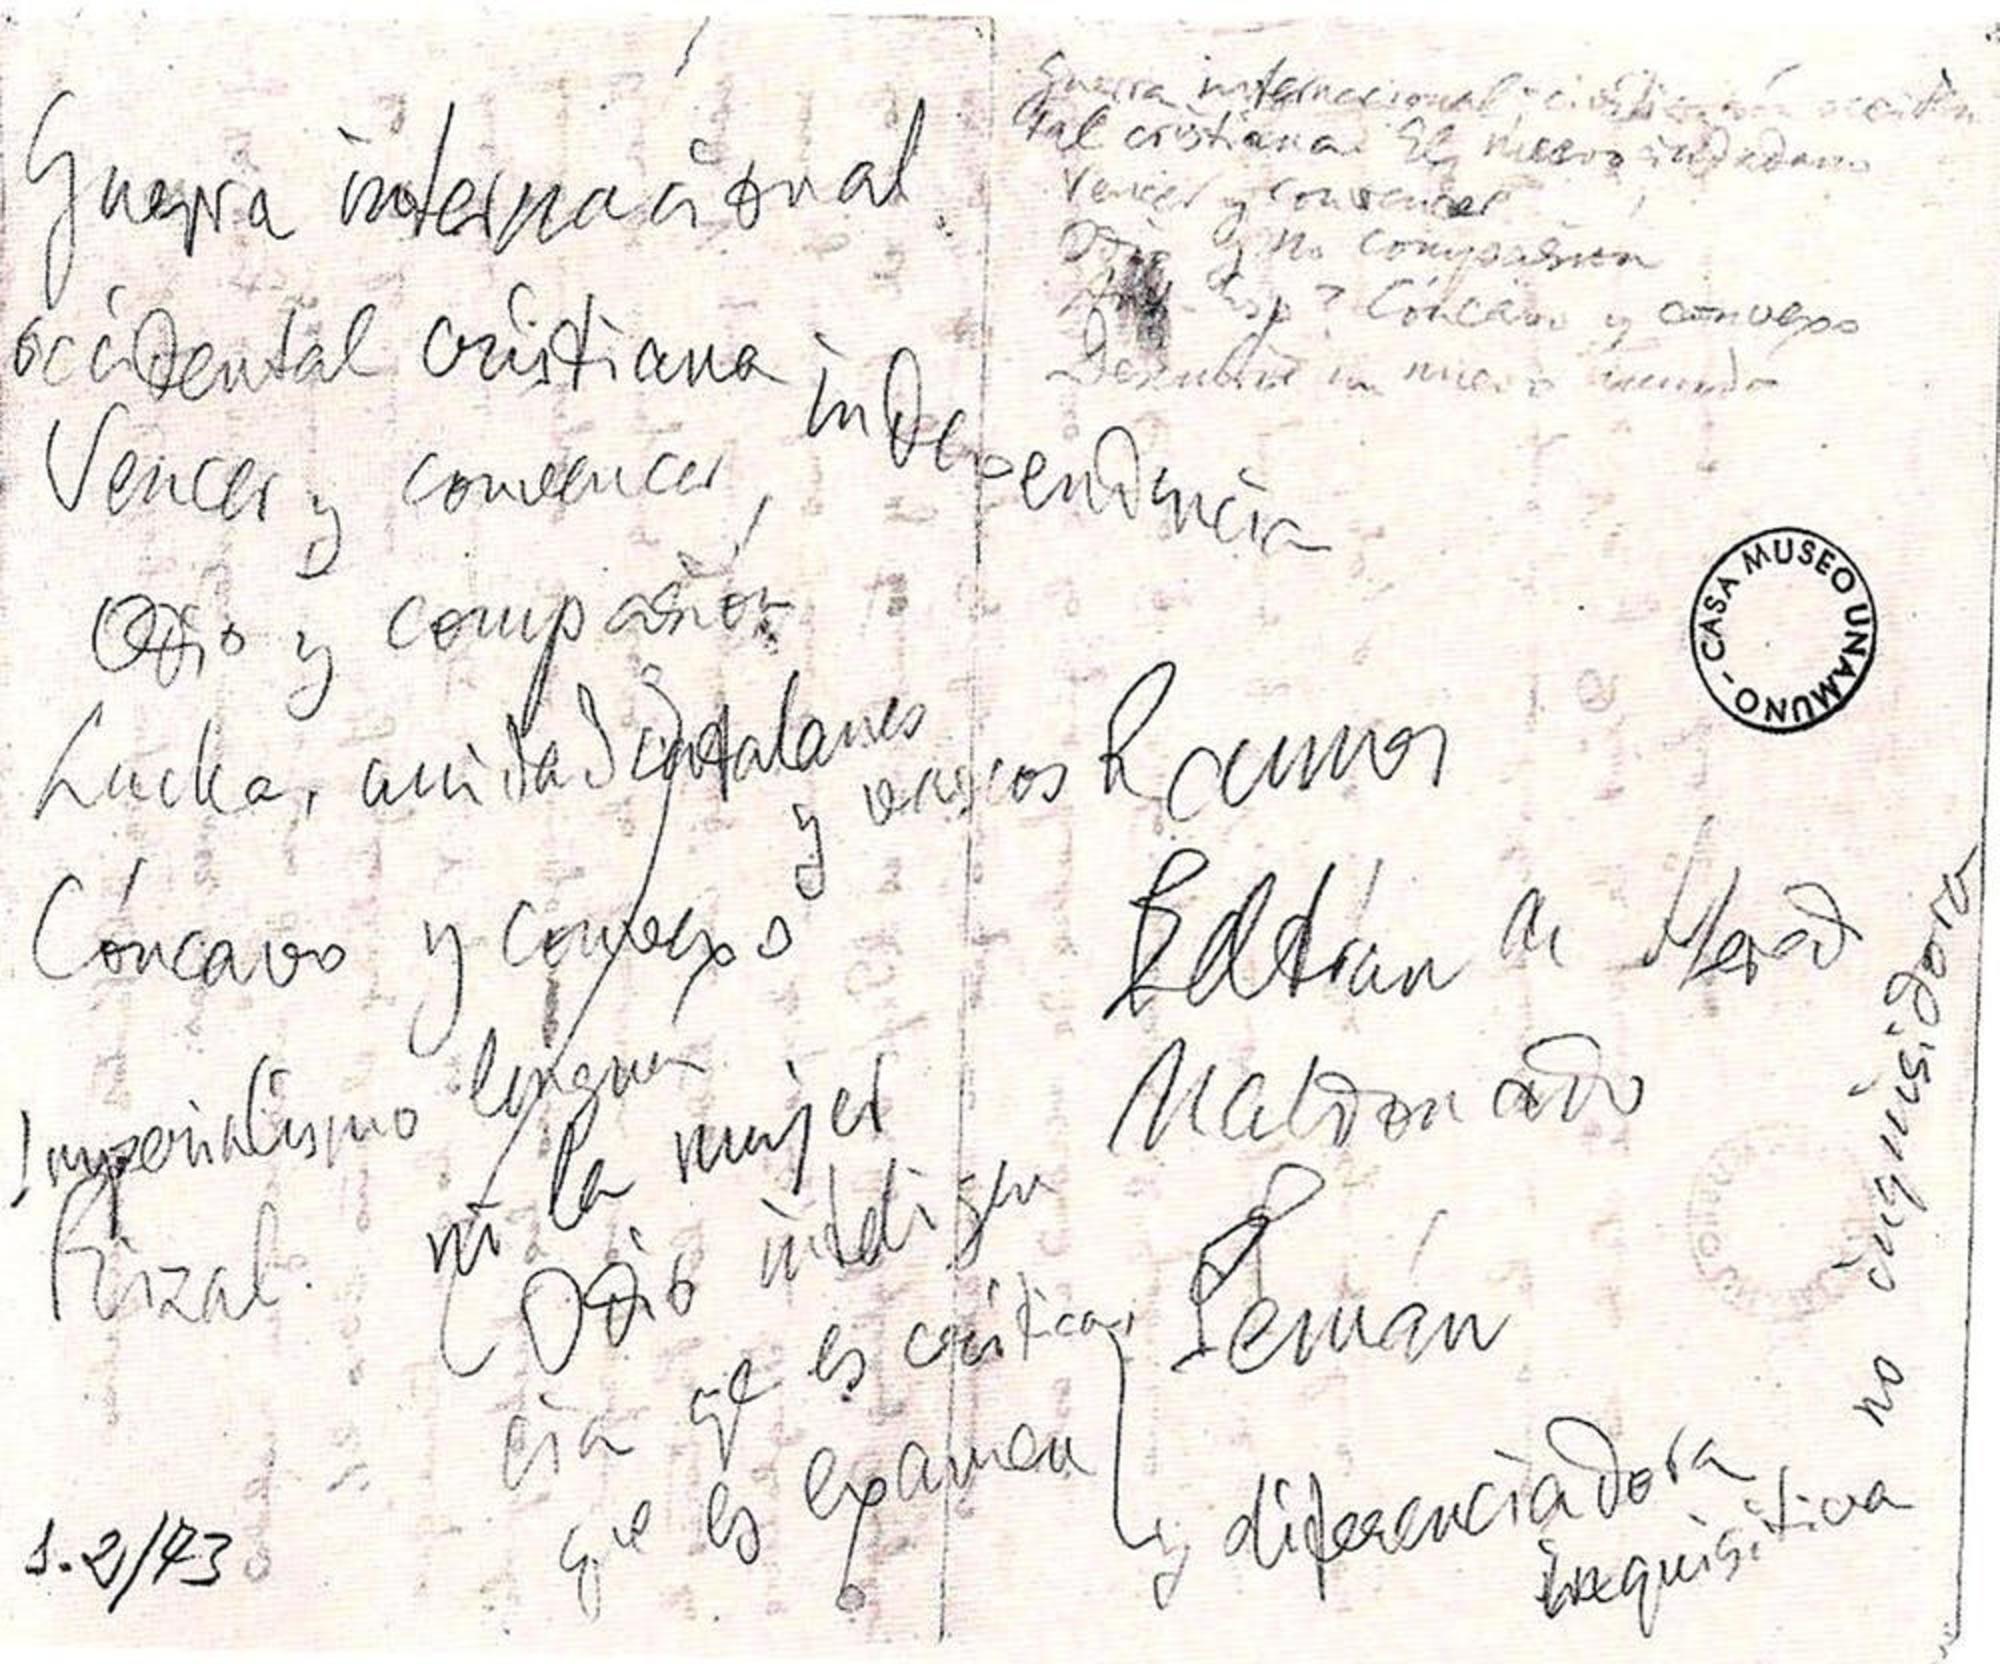 Guerra internacional
occidental cristiana independencia
Vencer y convencer
Odio y compasión
Lucha, unidad catalanes
y vascos
Cóncavo y convexo
Imperialismo lengua
Rizal. ni la mujer
Odio inteligen
cia que es crítica,
que es examen
y diferenciadora
inquisitiva
no inquisidora
1.2/73
Guerra internacional civilización occiden
tal cristiana El nuevo ciudadano
Vencer y convencer
Odio y no compasión
Cóncavo y convexo
un nuevo mundo
CASA MUSEO UNAMUNO -
Ramos
Beltrán de
Maldonado
Pemán